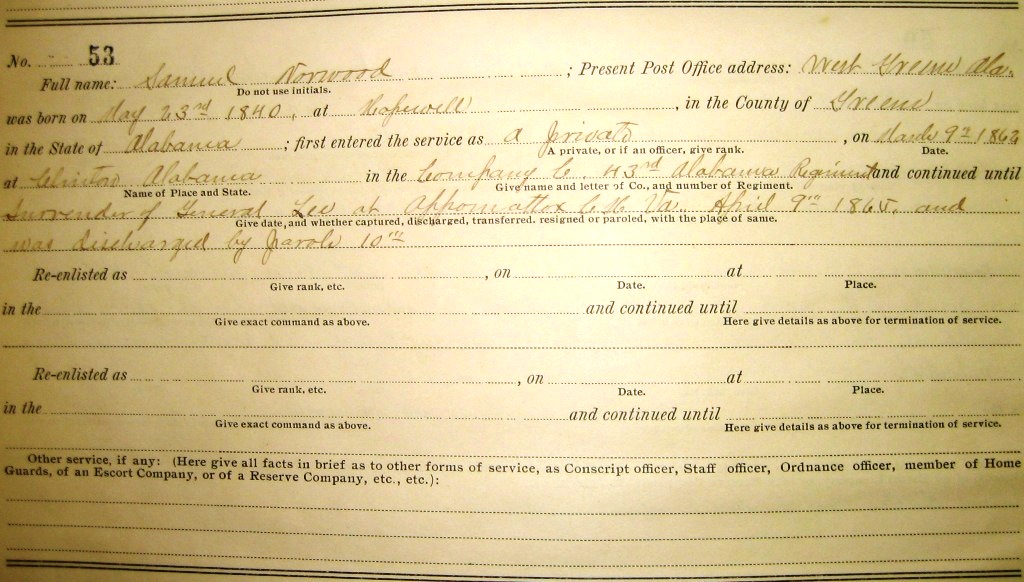 No. 53
Full name: Samuel Norwood ; Present Post Office address: West Greene Ala.
Do not use initials.
was born on May 23rd 1840, at Hopewell , in the County of Greene
in the State of Alabama ; first entered the service as a private , on March 9th 1862
A private, or if an officer, give rank. Date.
at Clinton Alabama in the Company C. 43rd Alabama Regiment and continued until
Name of Place and State. Give name and letter of Co., and number of Regiment.
Surrender of General Lee at Appomattox C.H. Va. April 9th 1865, and
Give date, and whether captured, discharged, transferred. resigned or paroled, with the place of same.
was discharged by parole 10th
Re-enlisted as , on at
Give rank, etc. Date. Place.
in the and continued until
Give exact command as above. Here give details as above for termination of service.
Re-enlisted as , on at
Give rank, etc. Date. Place.
in the and continued until
Give exact command as above. Here give details as above for termination of service.
Other service, if any: (Here give all facts in brief as to other forms of service, as Conscript officer, Staff officer, Ordnance officer, member of Home
Guards, of an Escort Company, or of a Reserve Company, etc., etc.):